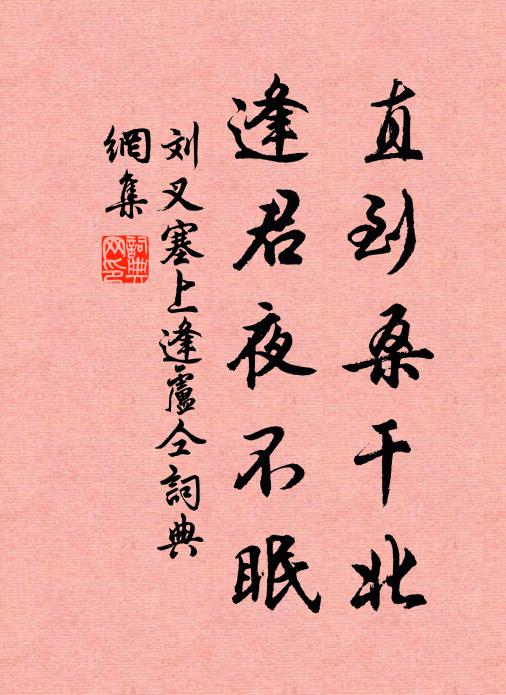 直到桑干北
逢君夜不眠
刘叉塞上逢盧仝詞典
網集
詞典
网印